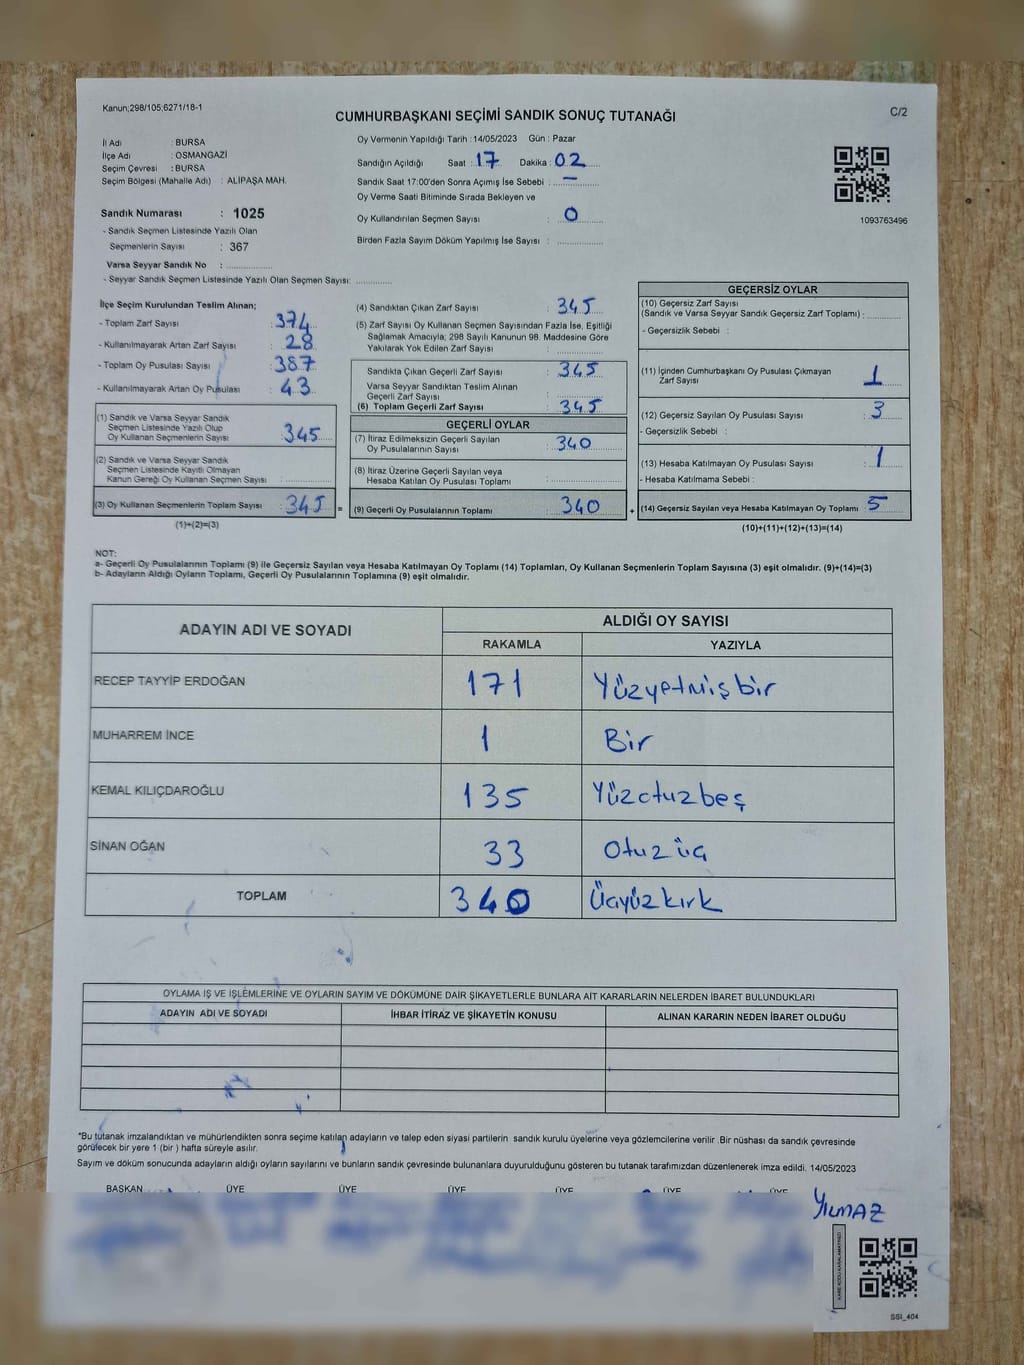 Kanun;298/105;6271/18-1
CUMHURBAŞKANI SEÇİMİ SANDIK SONUÇ TUTANAĞI
C/2
İl Adı : BURSA
İlçe Adı : OSMANGAZİ
Seçim Çevresi : BURSA
Seçim Bölgesi (Mahalle Adı) : ALİPAŞA MAH.
Sandık Numarası : 1025
- Sandık Seçmen Listesinde Yazılı Olan
Seçmenlerin Sayısı : 367
Varsa Seyyar Sandık No :
- Seyyar Sandık Seçmen Listesinde Yazılı Olan Seçmen Sayısı:
Oy Vermenin Yapıldığı Tarih : 14/05/2023 Gün : Pazar
Sandığın Açıldığı Saat : 17 Dakika : 02
Sandık Saat 17:00'den Sonra Açımış İse Sebebi : —
Oy Verme Saati Bitiminde Sırada Bekleyen ve
Oy Kullandırılan Seçmen Sayısı : 0
Birden Fazla Sayım Döküm Yapılmış İse Sayısı :
1093763496
İlçe Seçim Kurulundan Teslim Alınan;
- Toplam Zarf Sayısı : 374
- Kullanılmayarak Artan Zarf Sayısı : 28
- Toplam Oy Pusulası Sayısı : 387
- Kullanılmayarak Artan Oy Pusulası : 43
(1) Sandık ve Varsa Seyyar Sandık
Seçmen Listesinde Yazılı Olup
Oy Kullanan Seçmenlerin Sayısı : 345
(2) Sandık ve Varsa Seyyar Sandık
Seçmen Listesinde Kayıtlı Olmayan
Kanun Gereği Oy Kullanan Seçmen Sayısı :
(3) Oy Kullanan Seçmenlerin Toplam Sayısı : 345 =
(1)+(2)=(3)
(4) Sandıktan Çıkan Zarf Sayısı : 345
(5) Zarf Sayısı Oy Kullanan Seçmen Sayısından Fazla İse, Eşitliği
Sağlamak Amacıyla; 298 Sayılı Kanunun 98. Maddesine Göre
Yakılarak Yok Edilen Zarf Sayısı :
Sandıkta Çıkan Geçerli Zarf Sayısı : 345
Varsa Seyyar Sandıktan Teslim Alınan
Geçerli Zarf Sayısı :
(6) Toplam Geçerli Zarf Sayısı : 345
GEÇERLİ OYLAR
(7) İtiraz Edilmeksizin Geçerli Sayılan
Oy Pusulalarının Sayısı : 340
(8) İtiraz Üzerine Geçerli Sayılan veya
Hesaba Katılan Oy Pusulası Toplamı :
(9) Geçerli Oy Pusulalarının Toplamı : 340 +
GEÇERSİZ OYLAR
(10) Geçersiz Zarf Sayısı
(Sandık ve Varsa Seyyar Sandık Geçersiz Zarf Toplamı) :
- Geçersizlik Sebebi :
(11) İçinden Cumhurbaşkanı Oy Pusulası Çıkmayan
Zarf Sayısı : 1
(12) Geçersiz Sayılan Oy Pusulası Sayısı : 3
- Geçersizlik Sebebi :
(13) Hesaba Katılmayan Oy Pusulası Sayısı : 1
- Hesaba Katılmama Sebebi :
(14) Geçersiz Sayılan veya Hesaba Katılmayan Oy Toplamı : 5
(10)+(11)+(12)+(13)=(14)
NOT:
a- Geçerli Oy Pusulalarının Toplamı (9) ile Geçersiz Sayılan veya Hesaba Katılmayan Oy Toplamı (14) Toplamları, Oy Kullanan Seçmenlerin Toplam Sayısına (3) eşit olmalıdır. (9)+(14)=(3)
b- Adayların Aldığı Oyların Toplamı, Geçerli Oy Pusulalarının Toplamına (9) eşit olmalıdır.
ADAYIN ADI VE SOYADI
ALDIĞI OY SAYISI
RAKAMLA YAZIYLA
RECEP TAYYİP ERDOĞAN 171 Yüzyetmişbir
MUHARREM İNCE 1 Bir
KEMAL KILIÇDAROĞLU 135 Yüzotuzbeş
SİNAN OĞAN 33 Otuzüç
TOPLAM 340 Üçyüzkırk
OYLAMA İŞ VE İŞLEMLERİNE VE OYLARIN SAYIM VE DÖKÜMÜNE DAİR ŞİKAYETLERLE BUNLARA AİT KARARLARIN NELERDEN İBARET BULUNDUKLARI
ADAYIN ADI VE SOYADI İHBAR İTİRAZ VE ŞİKAYETİN KONUSU ALINAN KARARIN NEDEN İBARET OLDUĞU
*Bu tutanak imzalandıktan ve mühürlendikten sonra seçime katılan adayların ve talep eden siyasi partilerin sandık kurulu üyelerine veya gözlemcilerine verilir .Bir nüshası da sandık çevresinde
görülecek bir yere 1 (bir ) hafta süreyle asılır.
Sayım ve döküm sonucunda adayların aldığı oyların sayılarını ve bunların sandık çevresinde bulunanlara duyurulduğunu gösteren bu tutanak tarafımızdan düzenlenerek imza edildi. 14/05/2023
BAŞKAN ÜYE ÜYE ÜYE ÜYE ÜYE ÜYE
YILMAZ
SSI_404